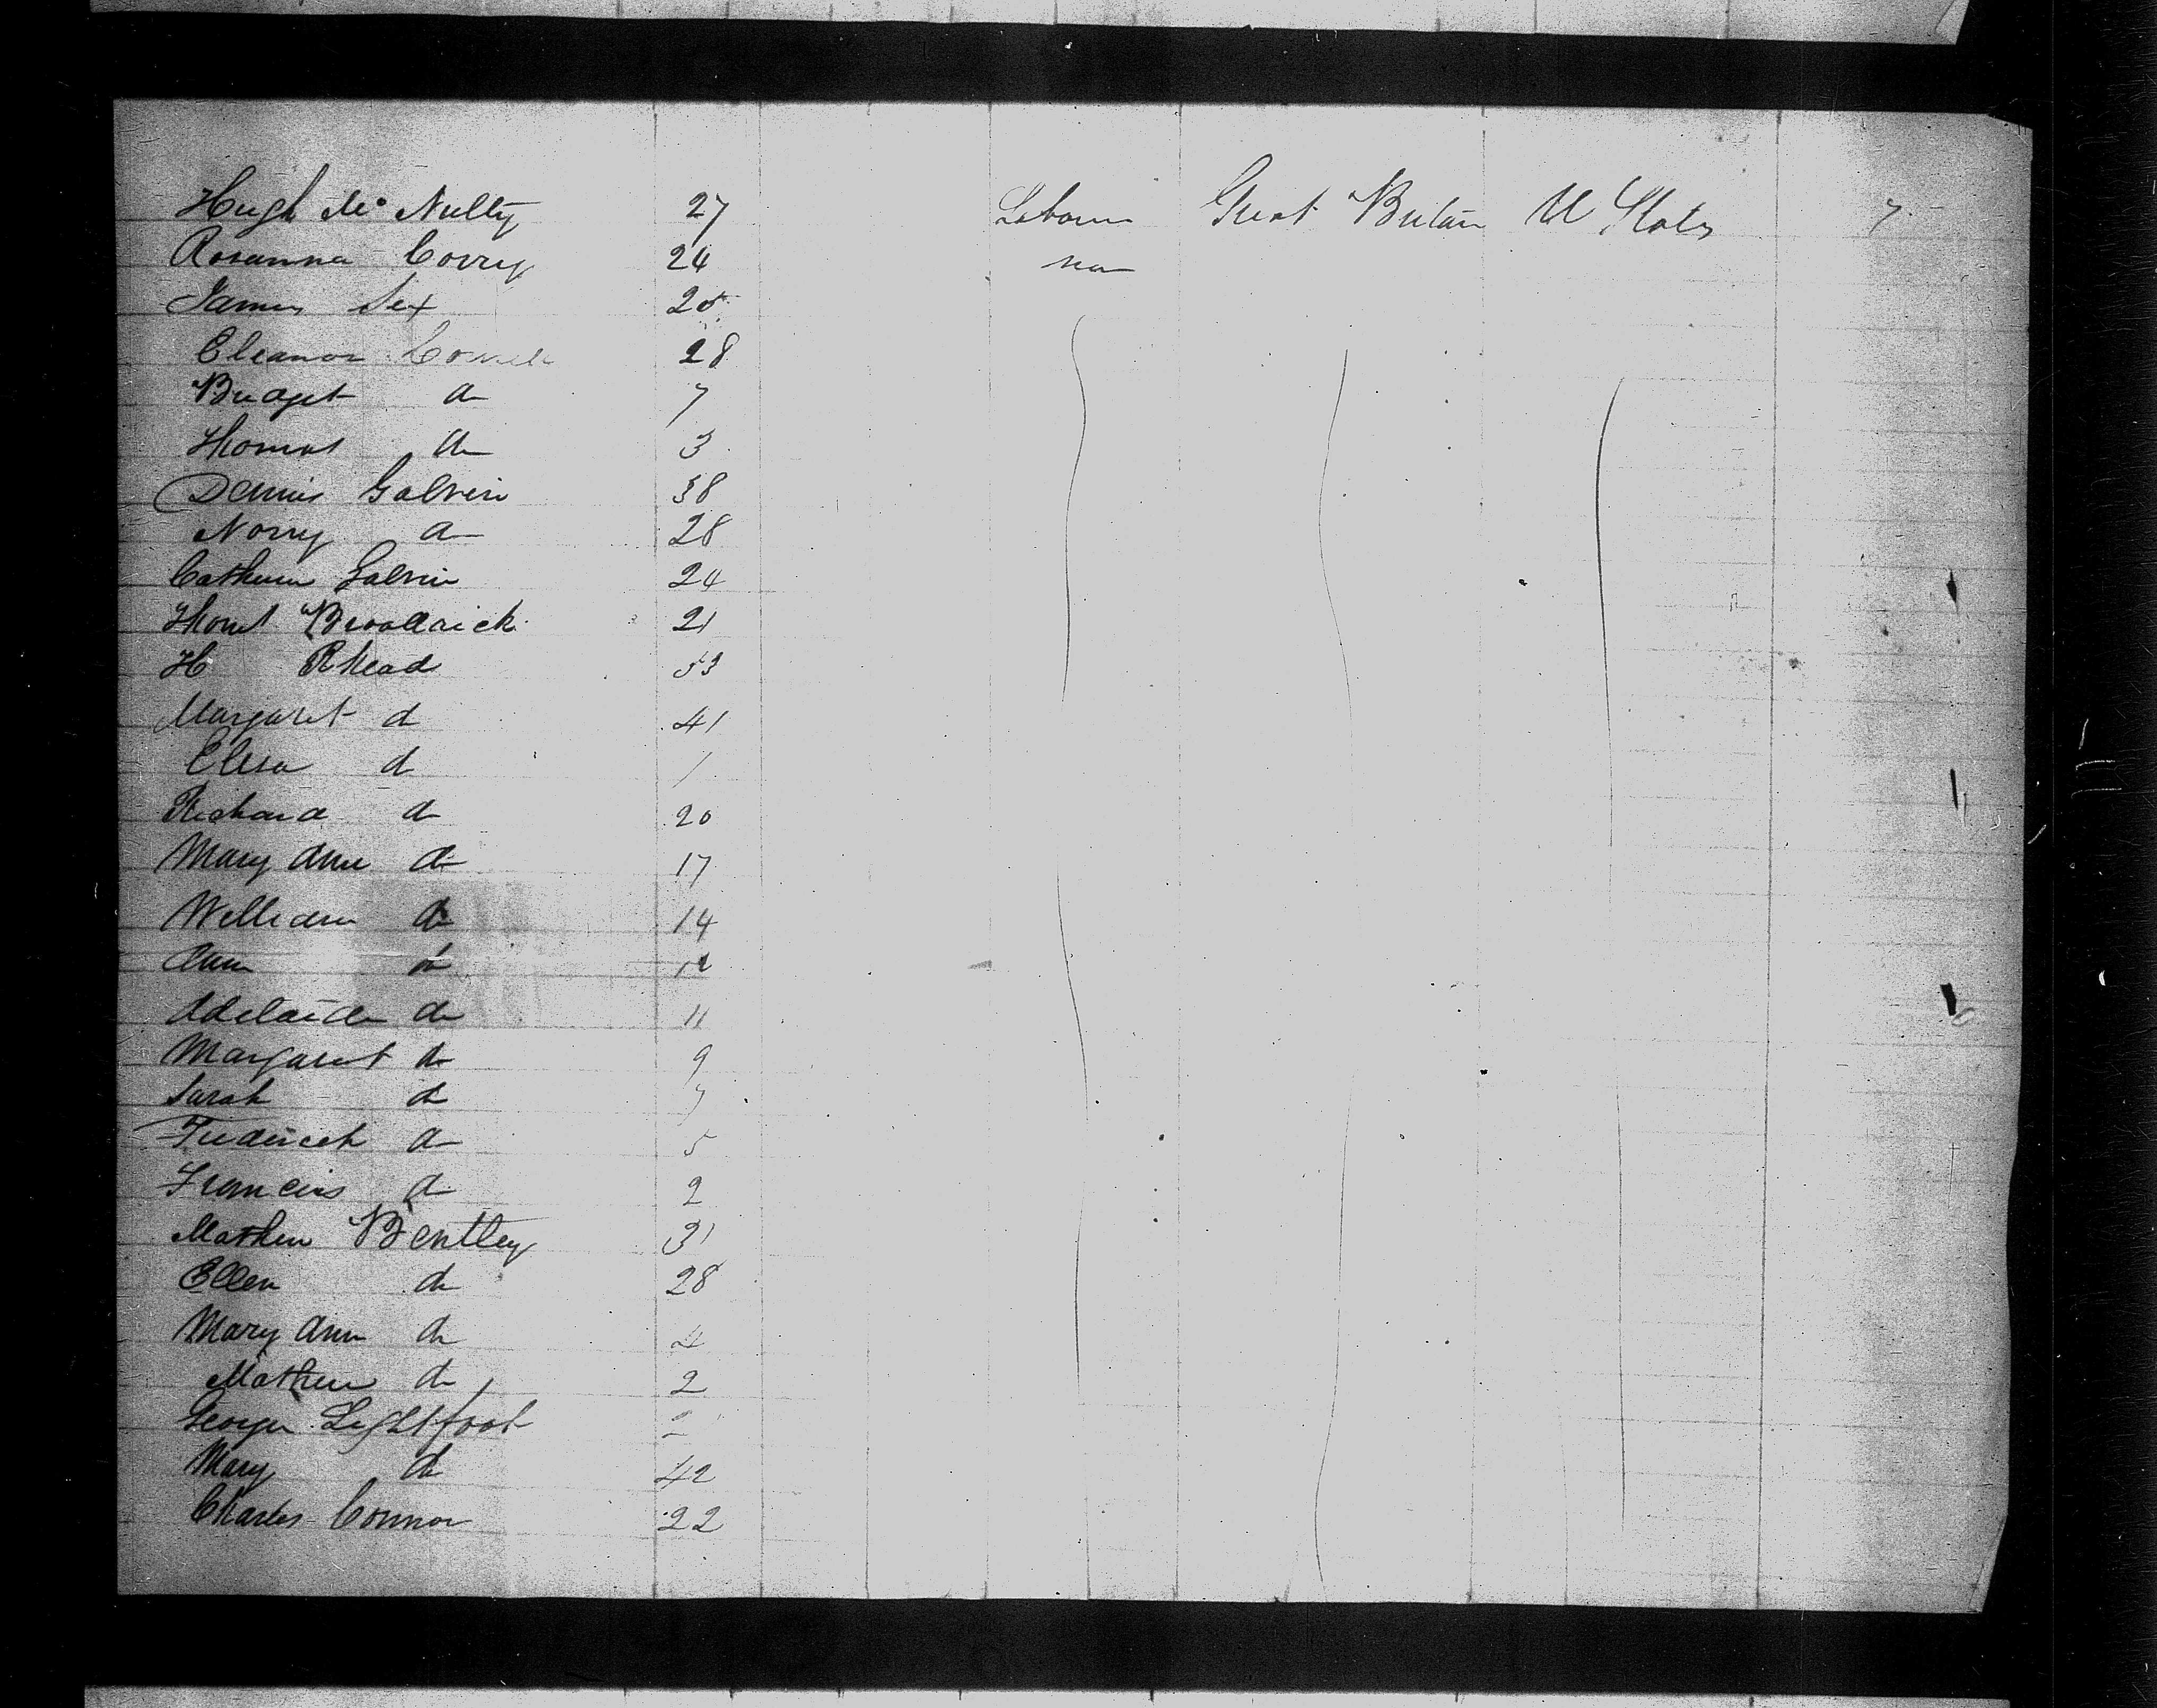 Hugh Mc Nulty 27 Labourer Great Britain U States 7
Rosanna Corry 24
James Sex 25
Eleanor 28
Bridget do 7
Thomas do 3
Dennis Galvin 38
Norry do 28
Catherine Galvin 24
Thomas Brodrick 21
H Rhead 53
Margaret do 41
Elisa do 1
Richard do 20
Mary Ann do 17
William do 14
Ann do 12
Adelaide do 11
Margaret do 9
Sarah do 7
Frederick do 5
Francis do 2
Mathew Bentley 31
Ellen do 28
Mary Ann do 4
Mathew do 2
George Lightfoot
Mary do 42
Charles Connor 22